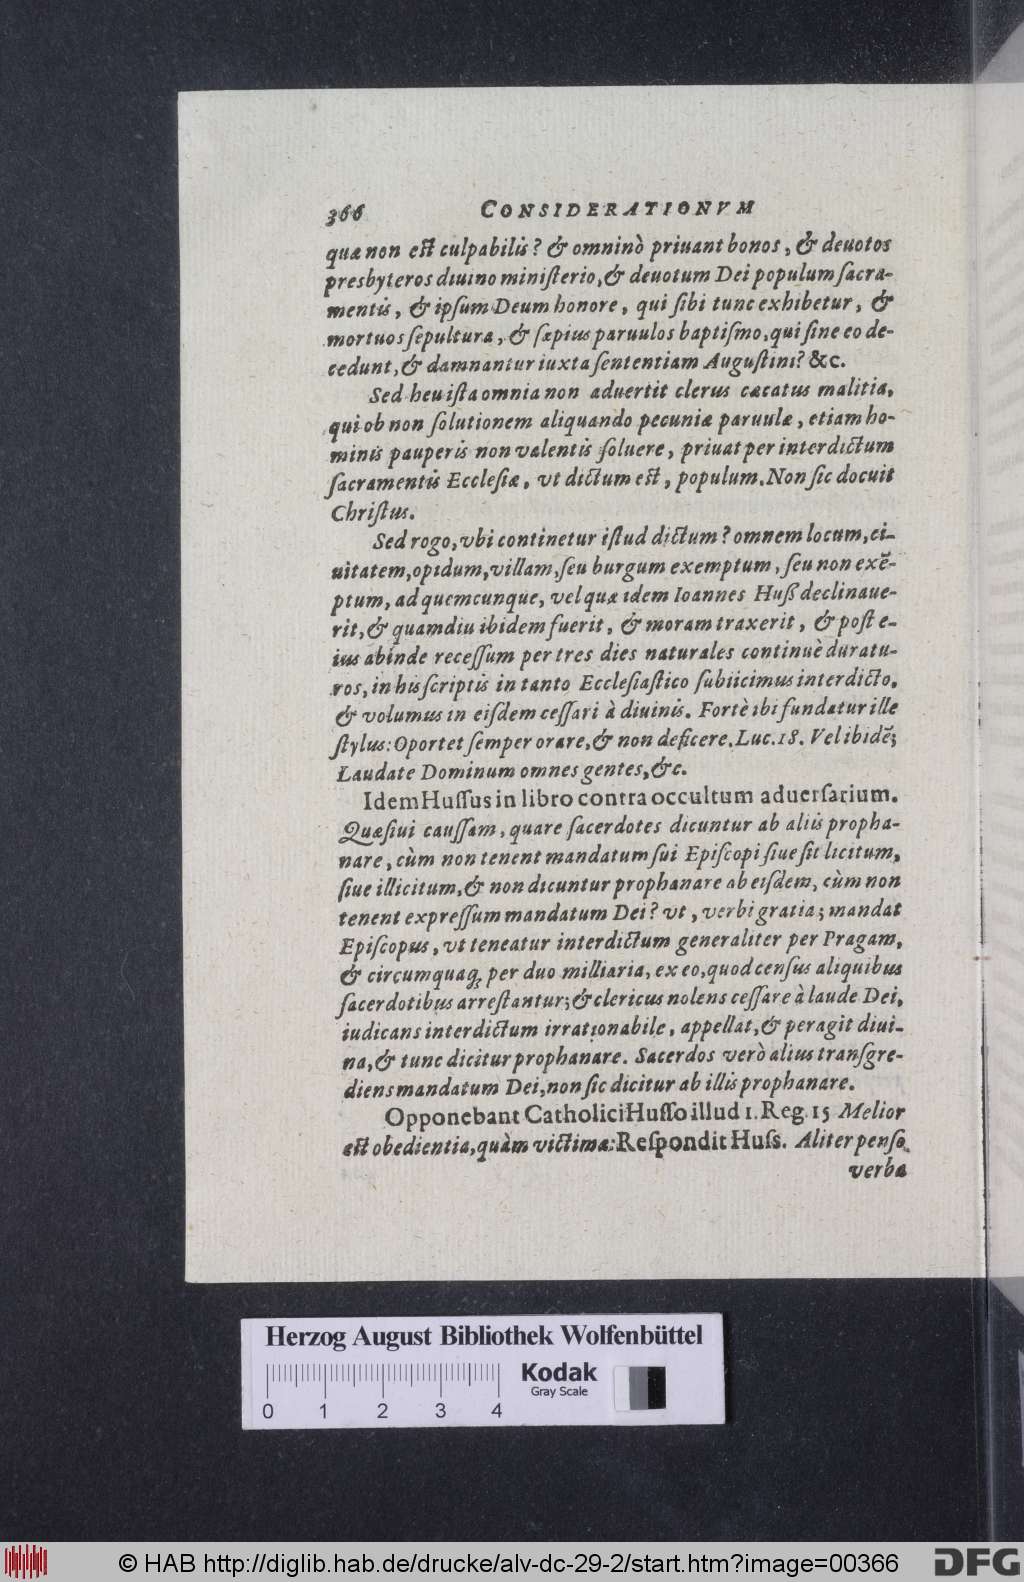 366 CONSIDERATIONVM
quæ non est culpabilis? & omninò priuant bonos, & deuotos
presbyteros diuino ministerio, & deuotum Dei populum sacra-
mentis, & ipsum Deum honore, qui sibi tunc exhibetur, &
mortuos sepultura, & sæpius paruulos baptismo, qui sine eo de-
cedunt, & damnantur iuxta sententiam Augustini? &c.
Sed heu ista omnia non aduertit clerus cæcatus malitia,
qui ob non solutionem aliquando pecuniæ paruulæ, etiam ho-
minis pauperis non valentis soluere, priuat per interdictum
sacramentis Ecclesiæ, vt dictum est, populum. Non sic docuit
Christus.
Sed rogo, vbi continetur istud dictum? omnem locum, ci-
uitatem, opidum, villam, seu burgum exemptum, seu non exē-
ptum, ad quemcunque, vel quæ idem Ioannes Huß declinaue-
rit, & quamdiu ibidem fuerit, & moram traxerit, & post e-
ius abinde recessum per tres dies naturales continuè duratu-
ros, in his scriptis in tanto Ecclesiastico subiicimus interdicto,
& volumus in eisdem cessari à diuinis. Fortè ibi fundatur ille
stylus: Oportet semper orare, & non deficere. Luc. 18. Vel ibidē;
Laudate Dominum omnes gentes, &c.
Idem Hussus in libro contra occultum aduersarium.
Quæsiui caussam, quare sacerdotes dicuntur ab aliis propha-
nare, cùm non tenent mandatum sui Episcopi siue sit licitum,
siue illicitum, & non dicuntur prophanare ab eisdem, cùm non
tenent expressum mandatum Dei? vt, verbi gratia; mandat
Episcopus, vt teneatur interdictum generaliter per Pragam,
& circumquaq; per duo milliaria, ex eo, quod census aliquibus
sacerdotibus arrestantur; & clericus nolens cessare à laude Dei,
iudicans interdictum irrationabile, appellat, & peragit diui-
na, & tunc dicitur prophanare. Sacerdos verò alius transgre-
diens mandatum Dei, non sic dicitur ab illis prophanare.
Opponebant Catholici Husso illud 1. Reg. 15 Melior
est obedientia, quàm victima: Respondit Huss. Aliter penso
verba
Herzog August Bibliothek Wolfenbüttel
Kodak
Gray Scale
0 1 2 3 4
© HAB http://diglib.hab.de/drucke/alv-dc-29-2/start.htm?image=00366
DFG